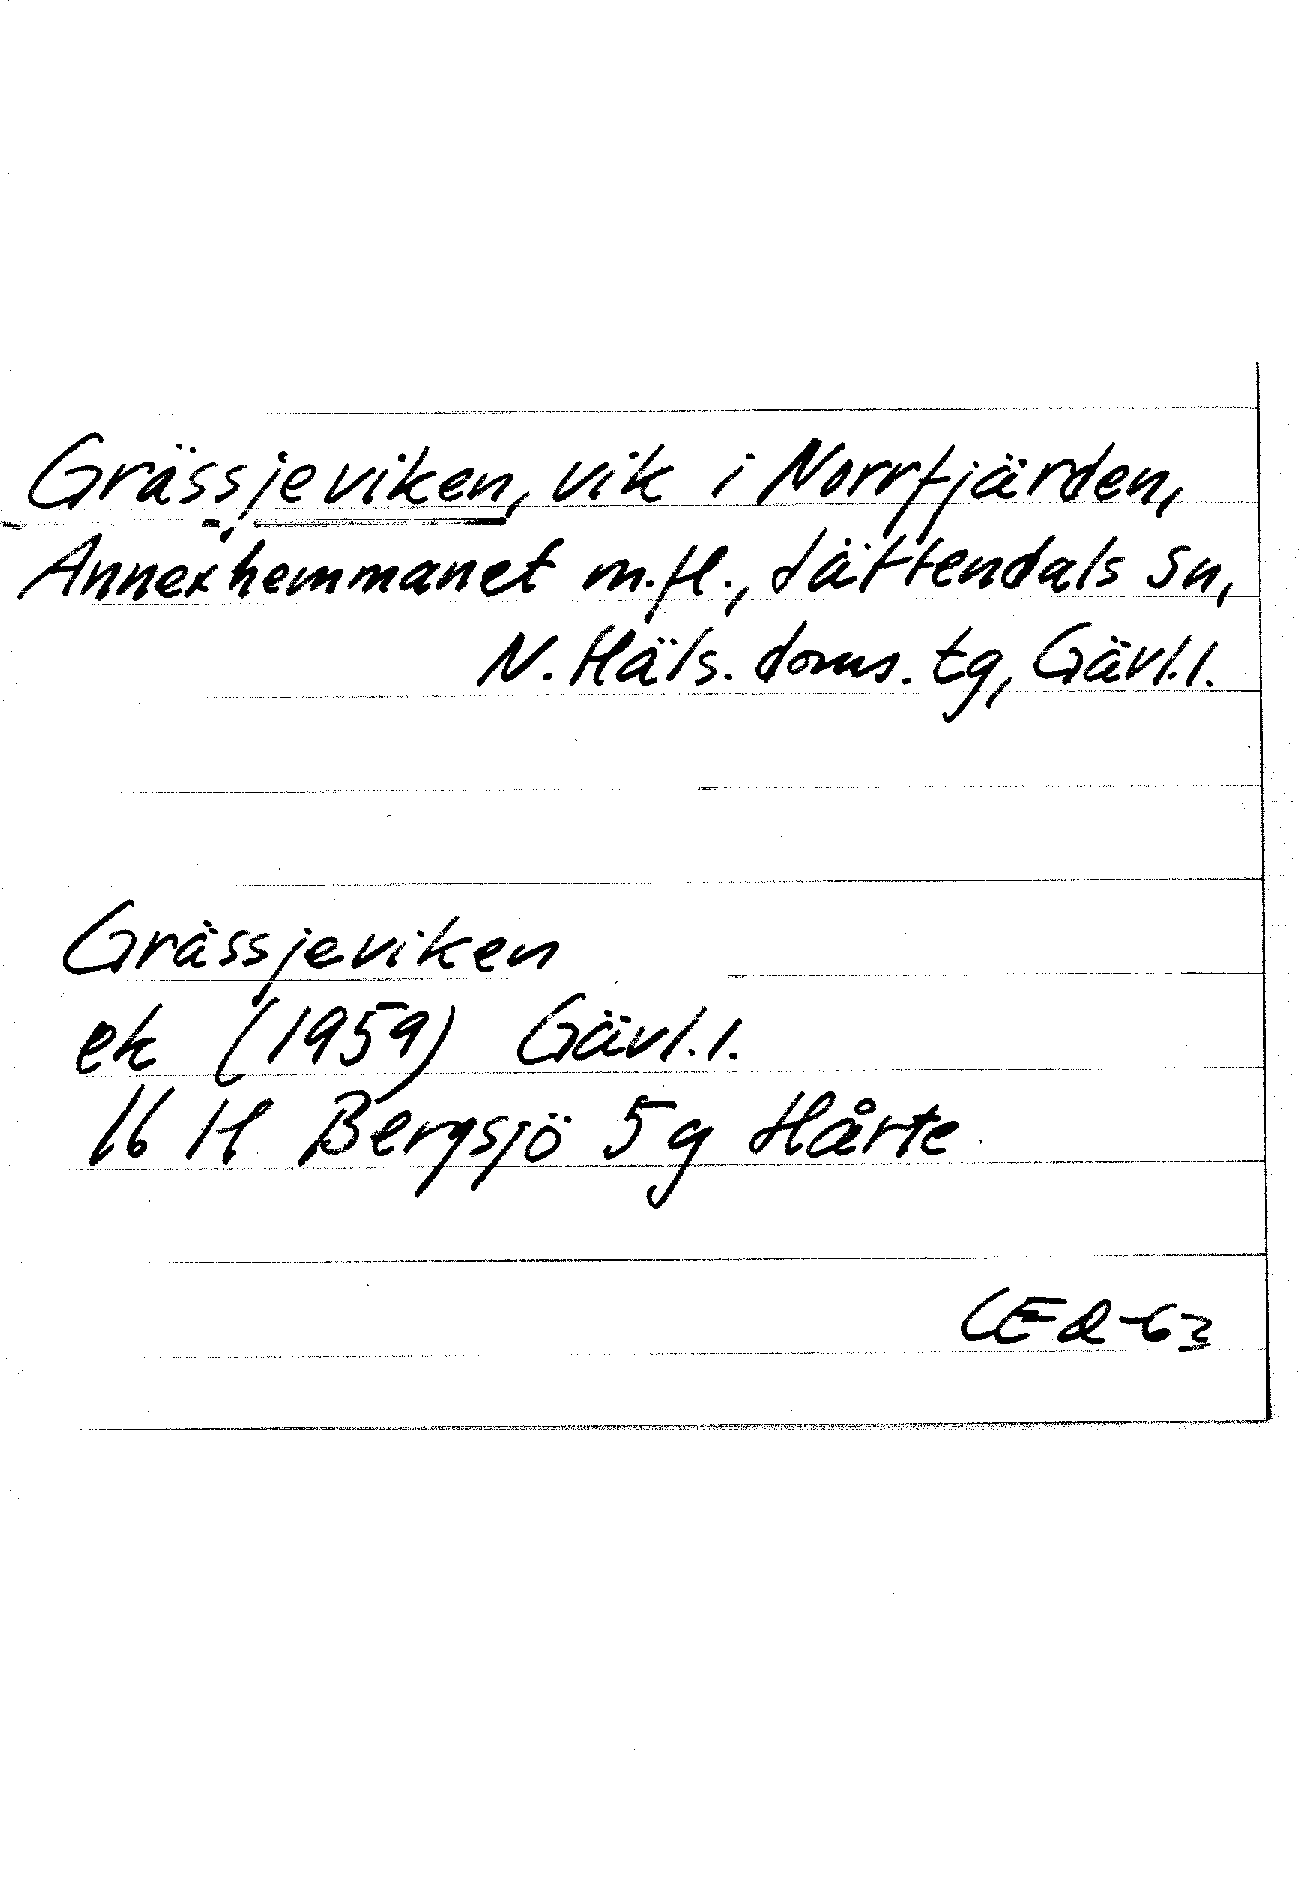 Grässjeviken, vik i Norrfjärden,
Annexhemmanet m.fl., Jättendals sn,
N. Häls. doms. tg, Gävl.l.
Grässjeviken
ek (1959) Gävl.l.
16 H Bergsjö 5g Hårte